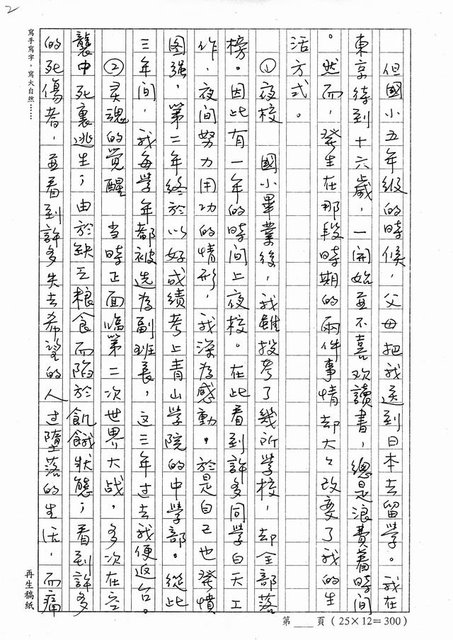 2
但國小五年級的時候，父母把我送到日本去留學。我在
東京待到十六歲，一開始並不喜歡讀書，總是浪費著時間
。然而，發生在那段時期的兩件事情却大大改變了我的生
活方式。
①夜校 國小畢業後，我雖投考了幾所學校，却全部落
榜。因此有一年的時間上夜校。在此看到許多同學白天工
作，夜間努力用功的情形，我深為感動。於是自己也發憤
图强，第二年終於以好成績考上青山學院的中學部。從此
三年間，我每學年都被选為副班長，这三年过去我便返台。
②灵魂的觉醒 當時正面临第二次世界大战，多次在空
襲中死裏逃生；由於缺乏粮食而陷於飢餓狀態；看到許多
的死傷者，並看到許多失去希望的人过墮落的生活，而痛
寫手寫字．寫大自然……
再生稿紙
第 頁（25×12=300）